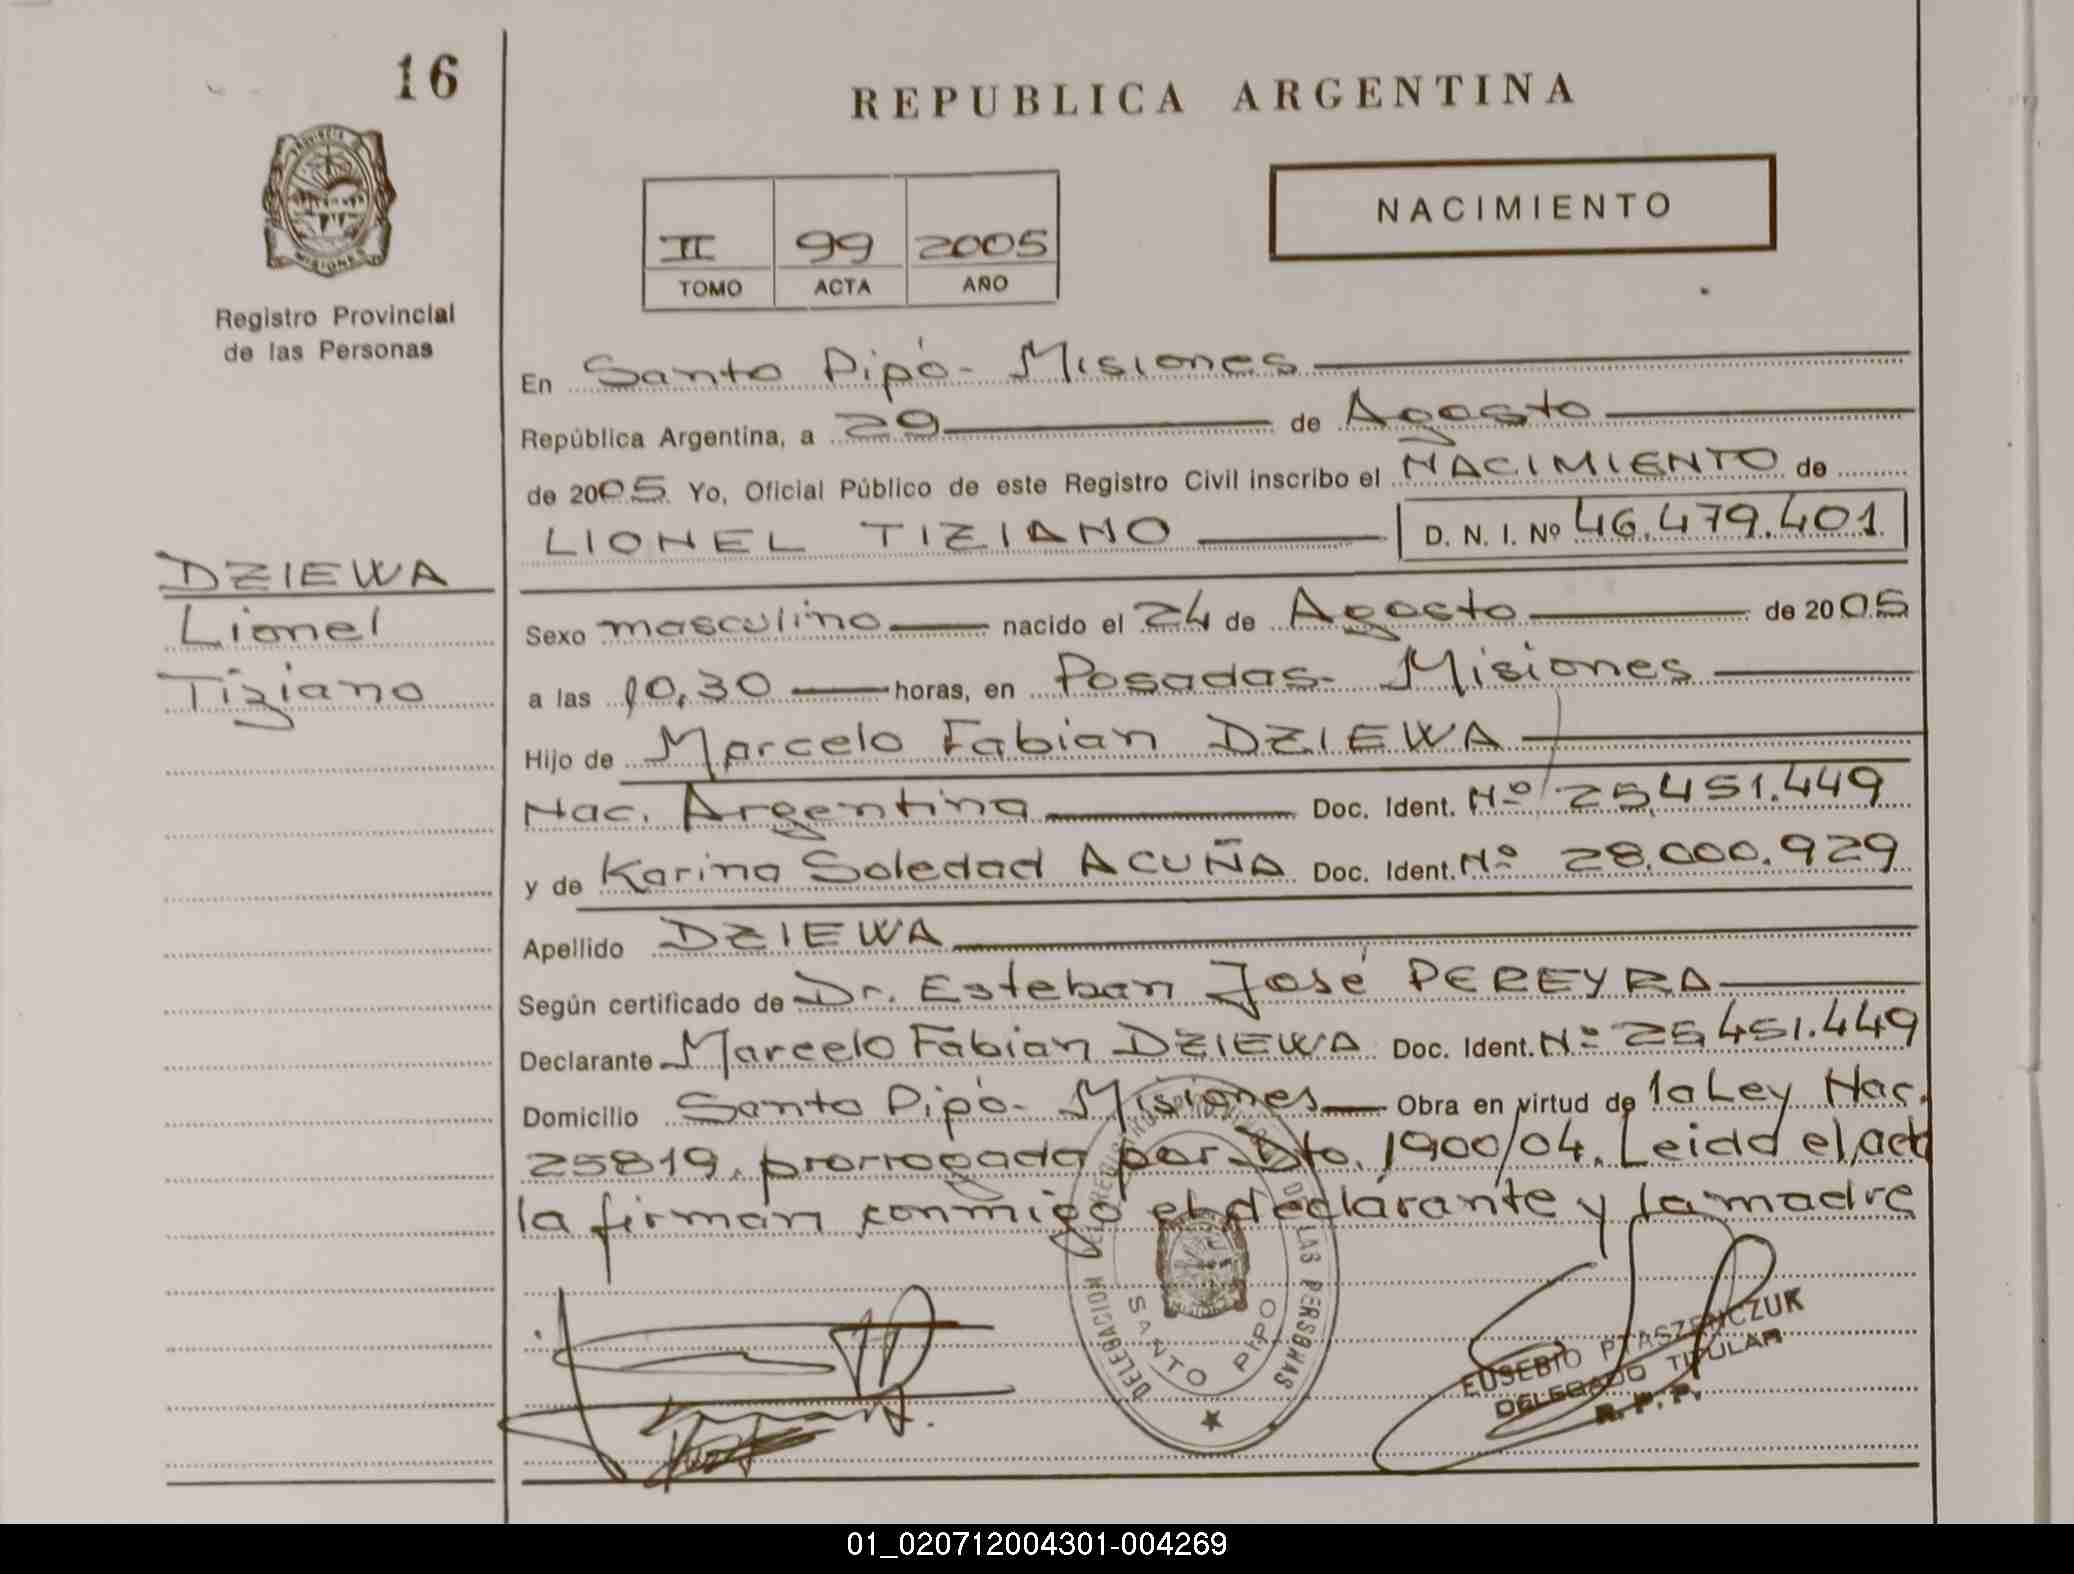 16
REPUBLICA ARGENTINA
PROVINCIA DE
MISIONES
NACIMIENTO
II 99 2005
TOMO ACTA AÑO
Registro Provincial
de las Personas
En Santo Pipó - Misiones
República Argentina, a 29 de Agosto
de 2005 Yo, Oficial Público de este Registro Civil inscribo el NACIMIENTO de
LIONEL TIZIANO D. N. I. Nº 46.479.401
DZIEWA
Lionel
Tiziano
Sexo masculino nacido el 24 de Agosto de 2005
a las 10,30 horas, en Posadas - Misiones
Hijo de Marcelo Fabian DZIEWA
Nac. Argentina Doc. Ident. Nº 25.451.449
y de Karina Soledad ACUÑA Doc. Ident. Nº 28.000.929
Apellido DZIEWA
Según certificado de Dr. Esteban José PEREYRA
Declarante Marcelo Fabian DZIEWA Doc. Ident. Nº 25.451.449
Domicilio Santo Pipó - Misiones Obra en virtud de la Ley Nac.
25819, prorrogada por Dto. 1900/04. Leida el acta
la firman conmigo el declarante y la madre
DELEGACION REGISTRO PROVINCIAL DE LAS PERSONAS
SANTO PIPO
EUSEBIO PTASZENCZUK
DELEGADO TITULAR
R. P. P.
01_020712004301-004269